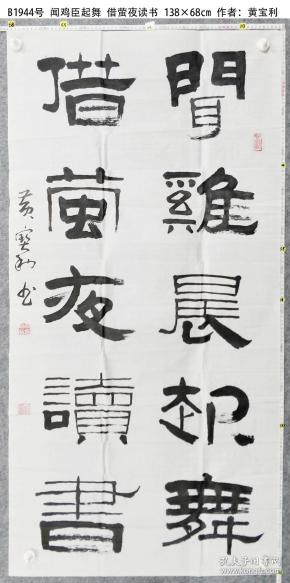 B1944号 闻鸡臣起舞 借萤夜读书 138×68cm 作者：黄宝利
聞雞晨起舞
借萤夜讀書
黄寶利书